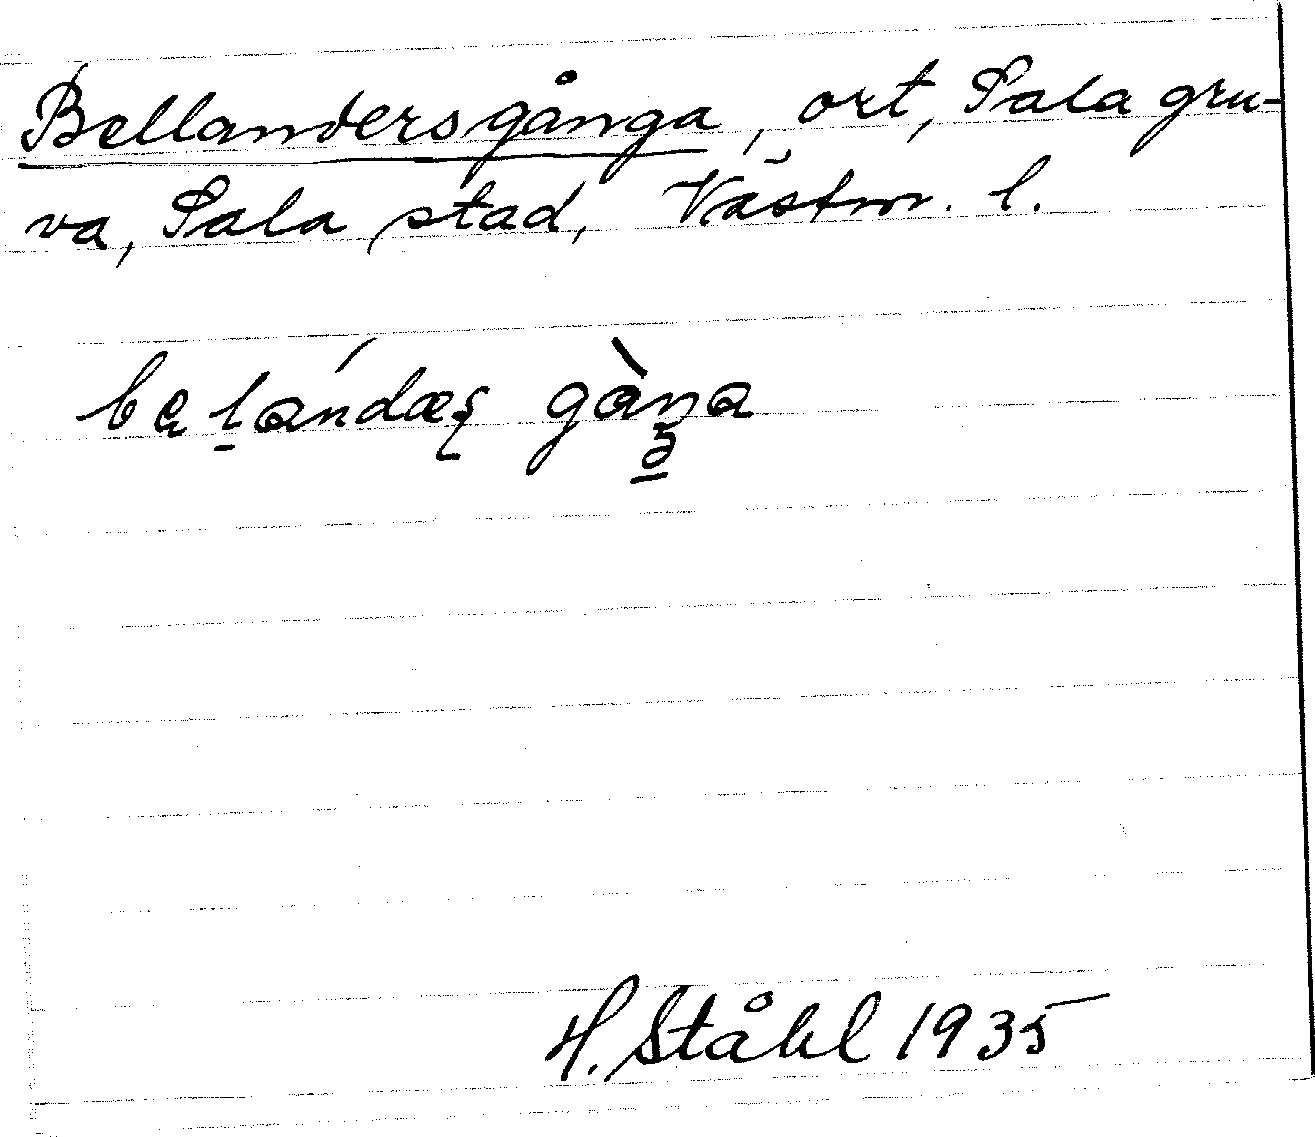 Bellandersgånga, ort, Sala gru-
va, Sala stad, Västm. l.
H. Ståhl 1935